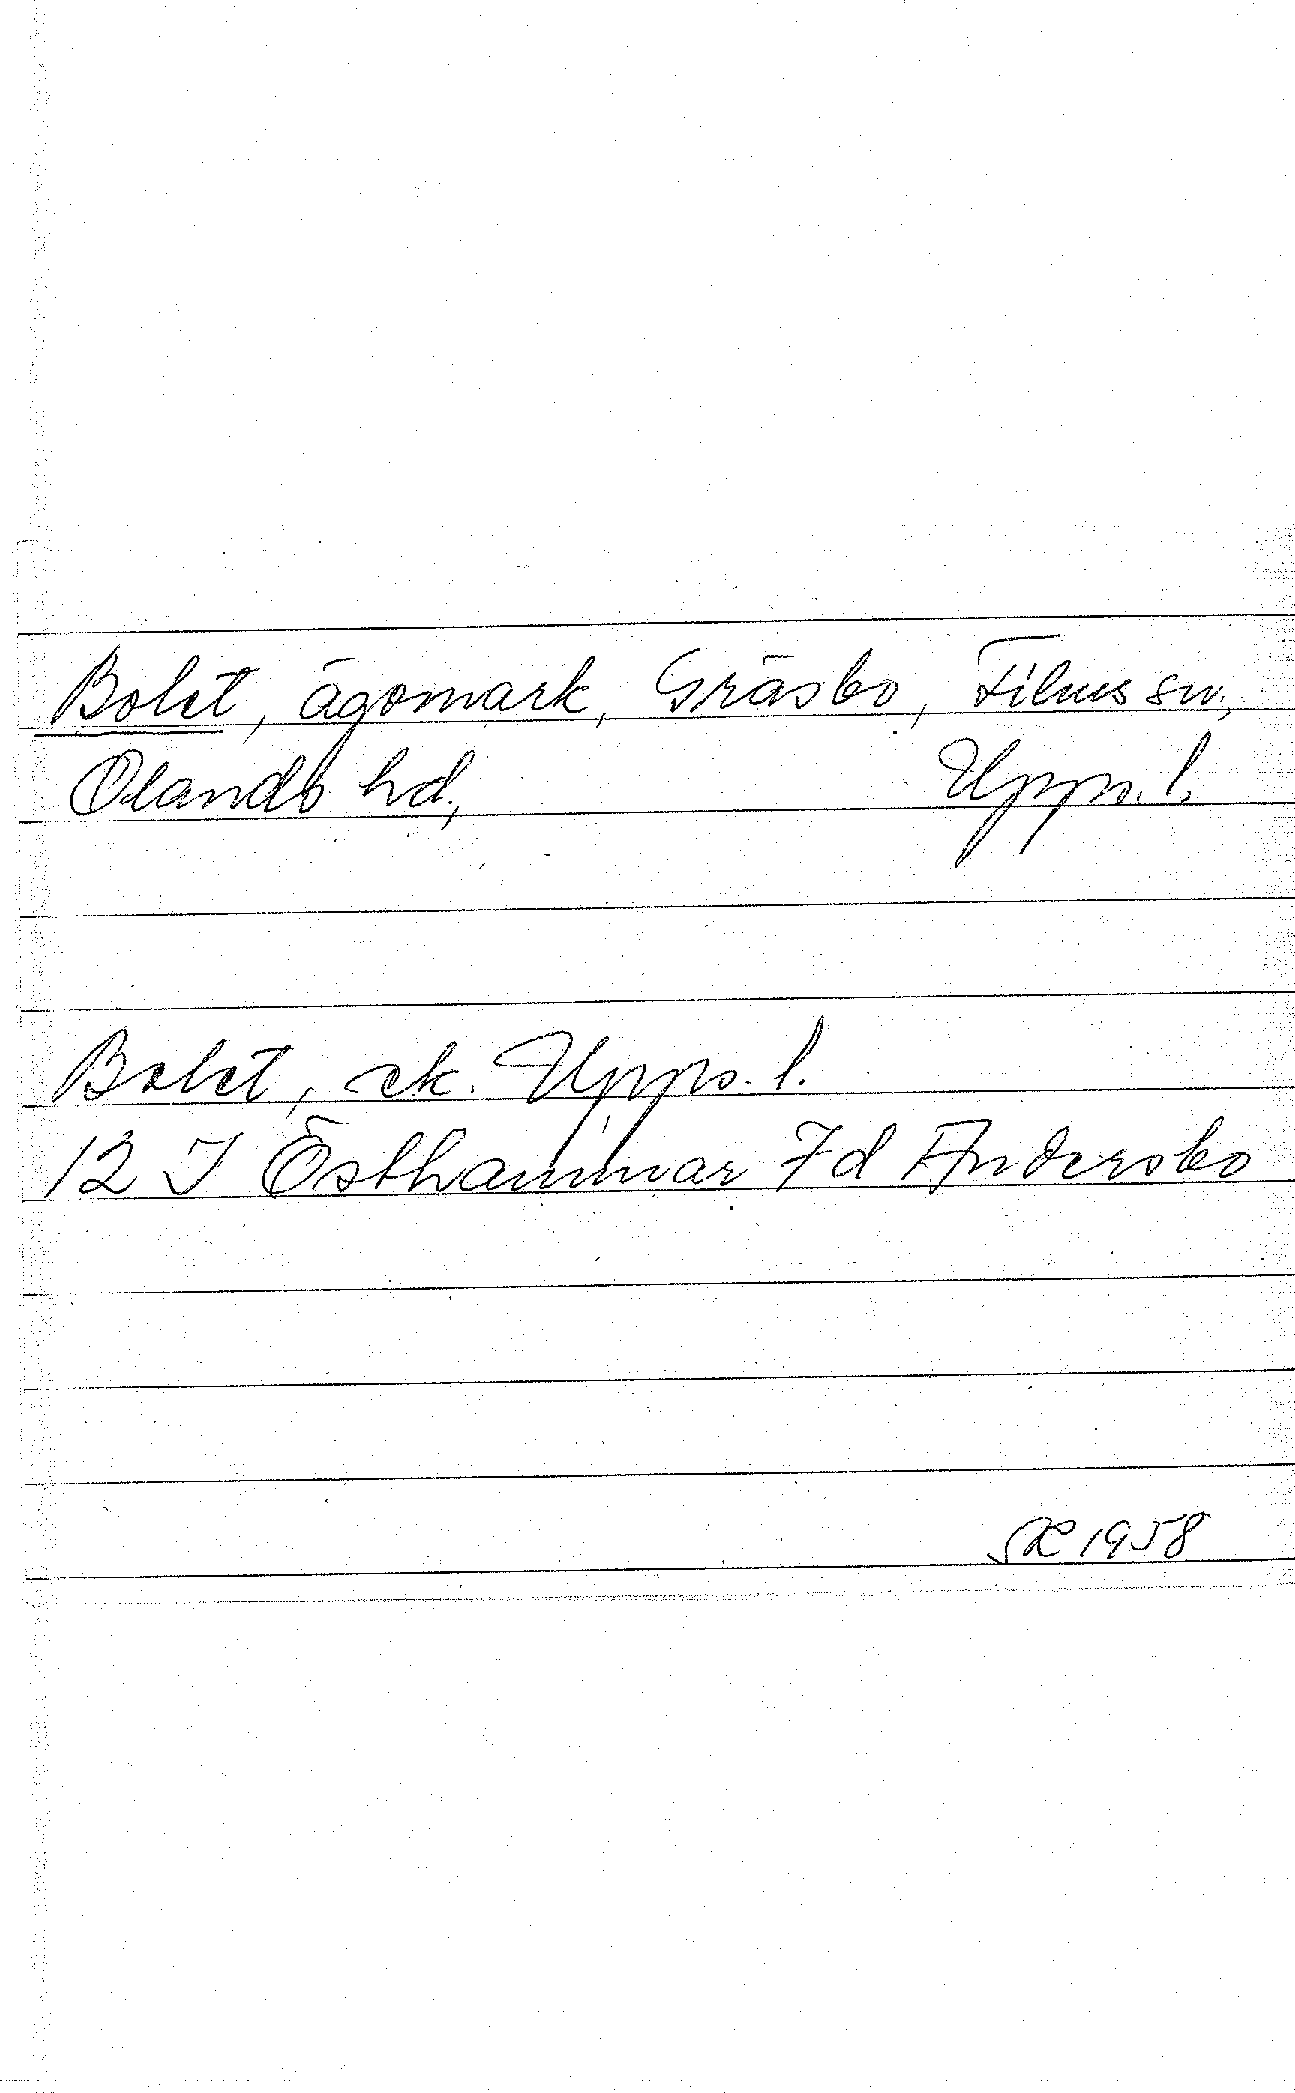 Bolet, ägomark, Gräsbo, Films sn,
Olands hd, Upps. l.
Bolet, ek. Upps. l.
12 I Östhammar 7d Andersbo
1958